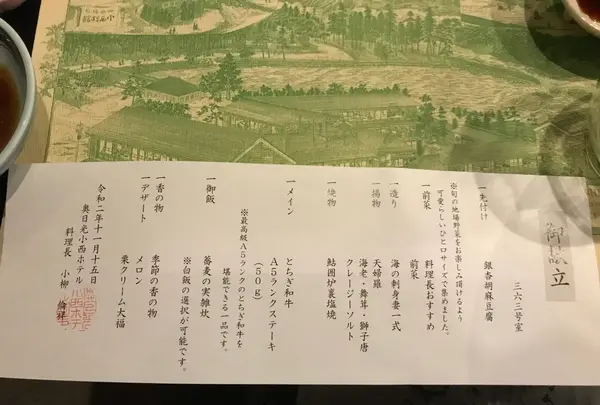 御献立
三六三号室
一先付け 銀杏胡麻豆腐
※旬の地場野菜をお楽しみ頂けるよう
可愛らしいひと口サイズで集めました。
一前菜 料理長おすすめ
前菜
一造り 海の刺身妻一式
一揚物 天婦羅
海老・舞茸・獅子唐
クレージーソルト
一焼物 鮎囲炉裏塩焼
一メイン とちぎ和牛
A5ランクステーキ
(50g)
※最高級A5ランクのとちぎ和牛を
堪能できる一品です。
一御飯 蕎麦の実雑炊
※白飯の選択が可能です。
一香の物 季節の香の物
一デザート メロン
栗クリーム大福
令和二年十一月十五日
奥日光小西ホテル
料理長 小柳